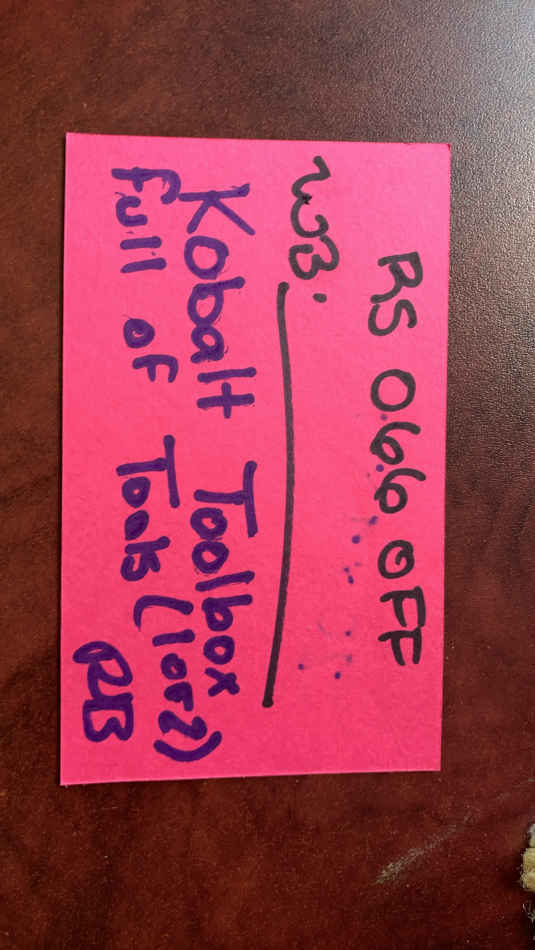 RS 066 OFF
WB.
Kobalt Toolbox
full of Tools (1 of 2)
RB